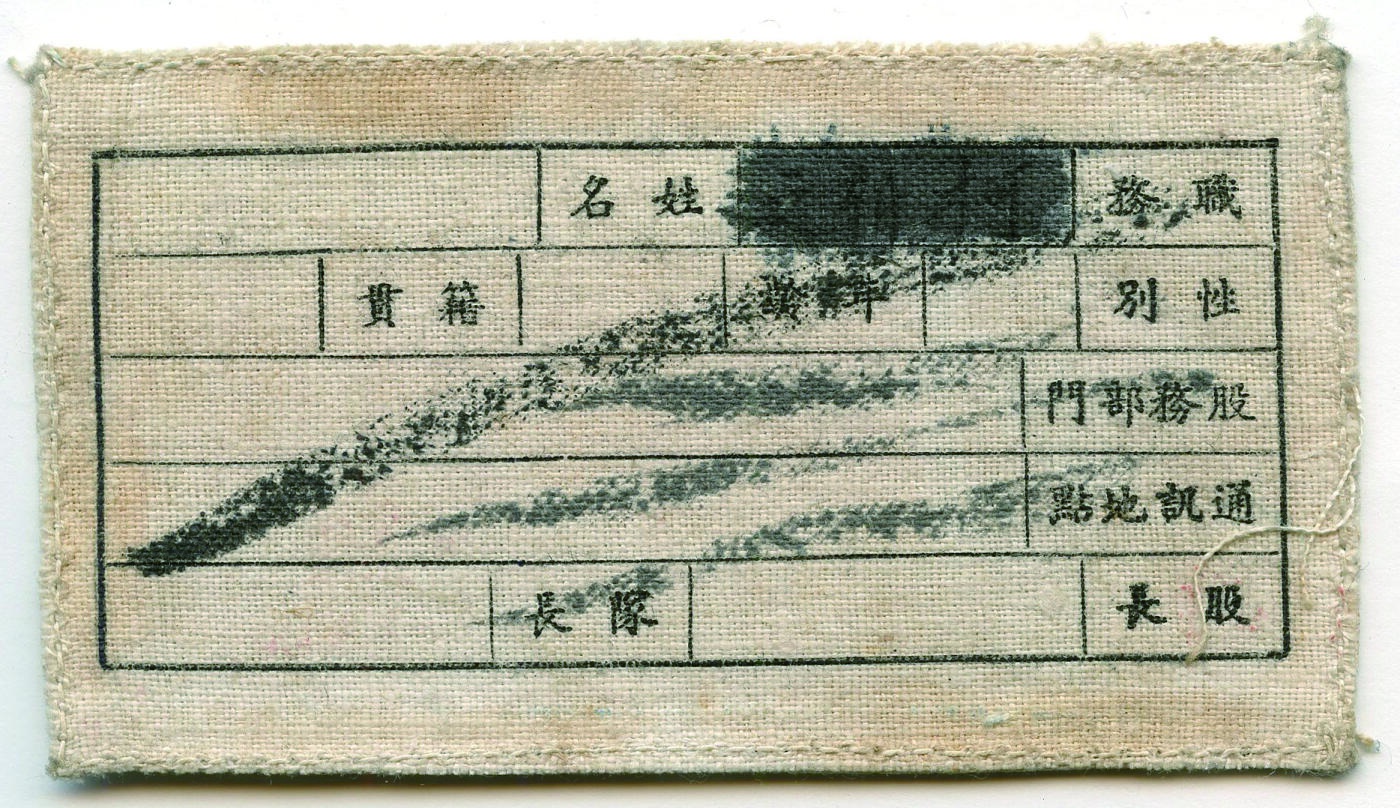 職務 姓名
性別 年齡 籍貫
股務部門
通訊地點
股長 隊長